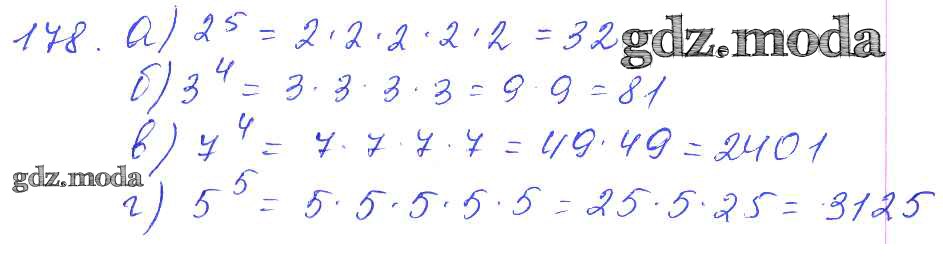 178. а) 2⁵ = 2·2·2·2·2 = 32 gdz.moda
б) 3⁴ = 3·3·3·3 = 9·9 = 81
в) 7⁴ = 7·7·7·7 = 49·49 = 2401
gdz.moda
г) 5⁵ = 5·5·5·5·5 = 25·5·25 = 3125